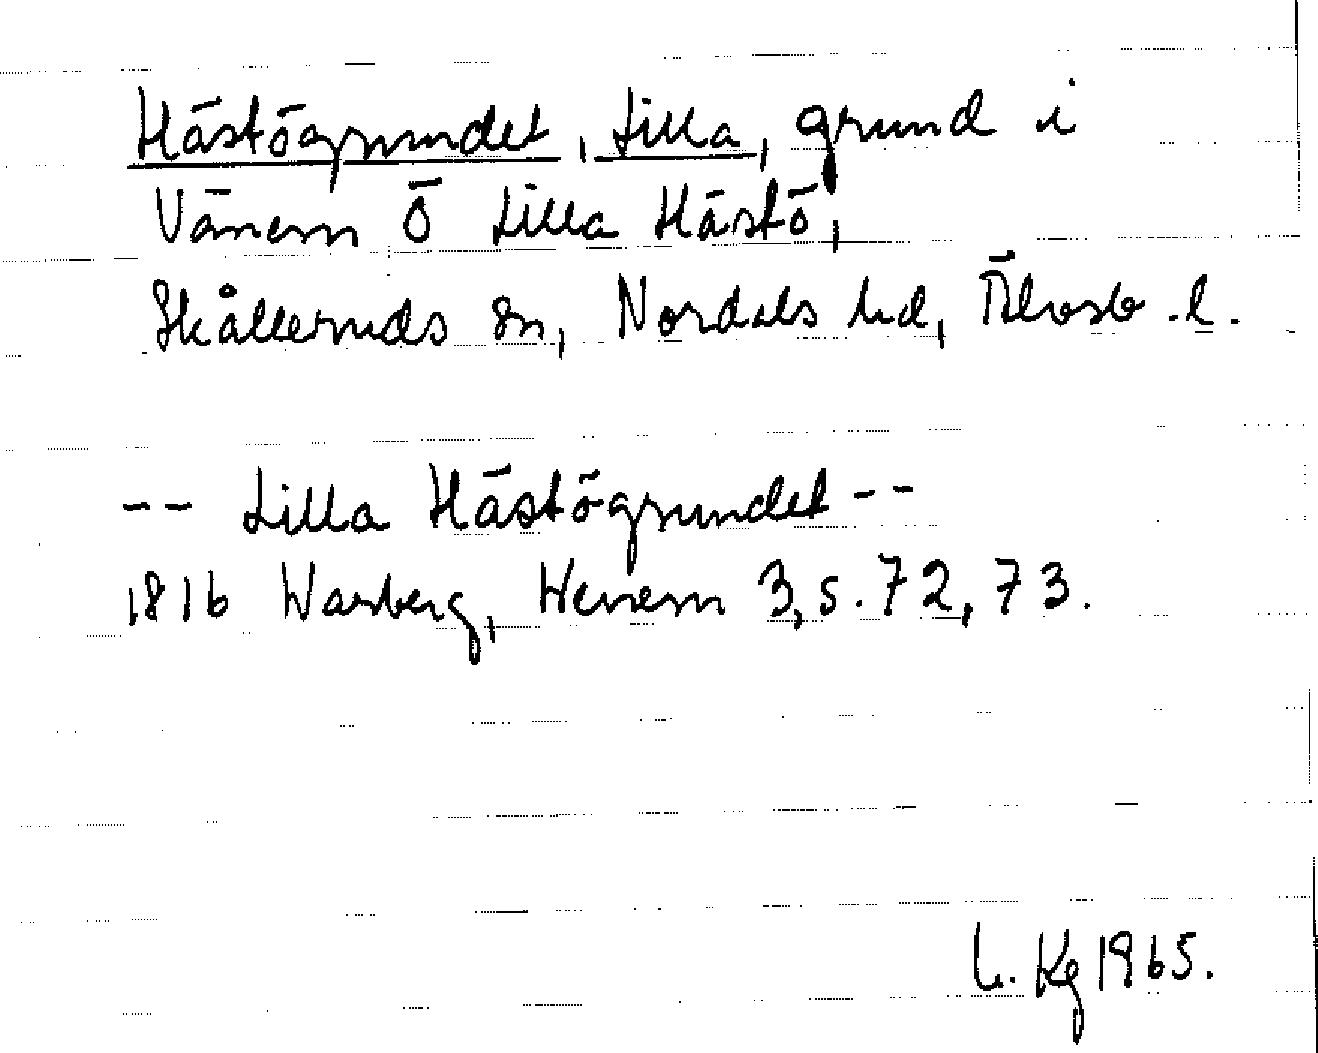 Hästögrundet, Lilla, grund i
Vänern Ö Lilla Hästö,
Skålleruds sn, Nordals hd, Älvsb. l.
-- Lilla Hästögrundet --
1816 Warberg, Wenern 3, s. 72, 73.
L. Kg 1965.